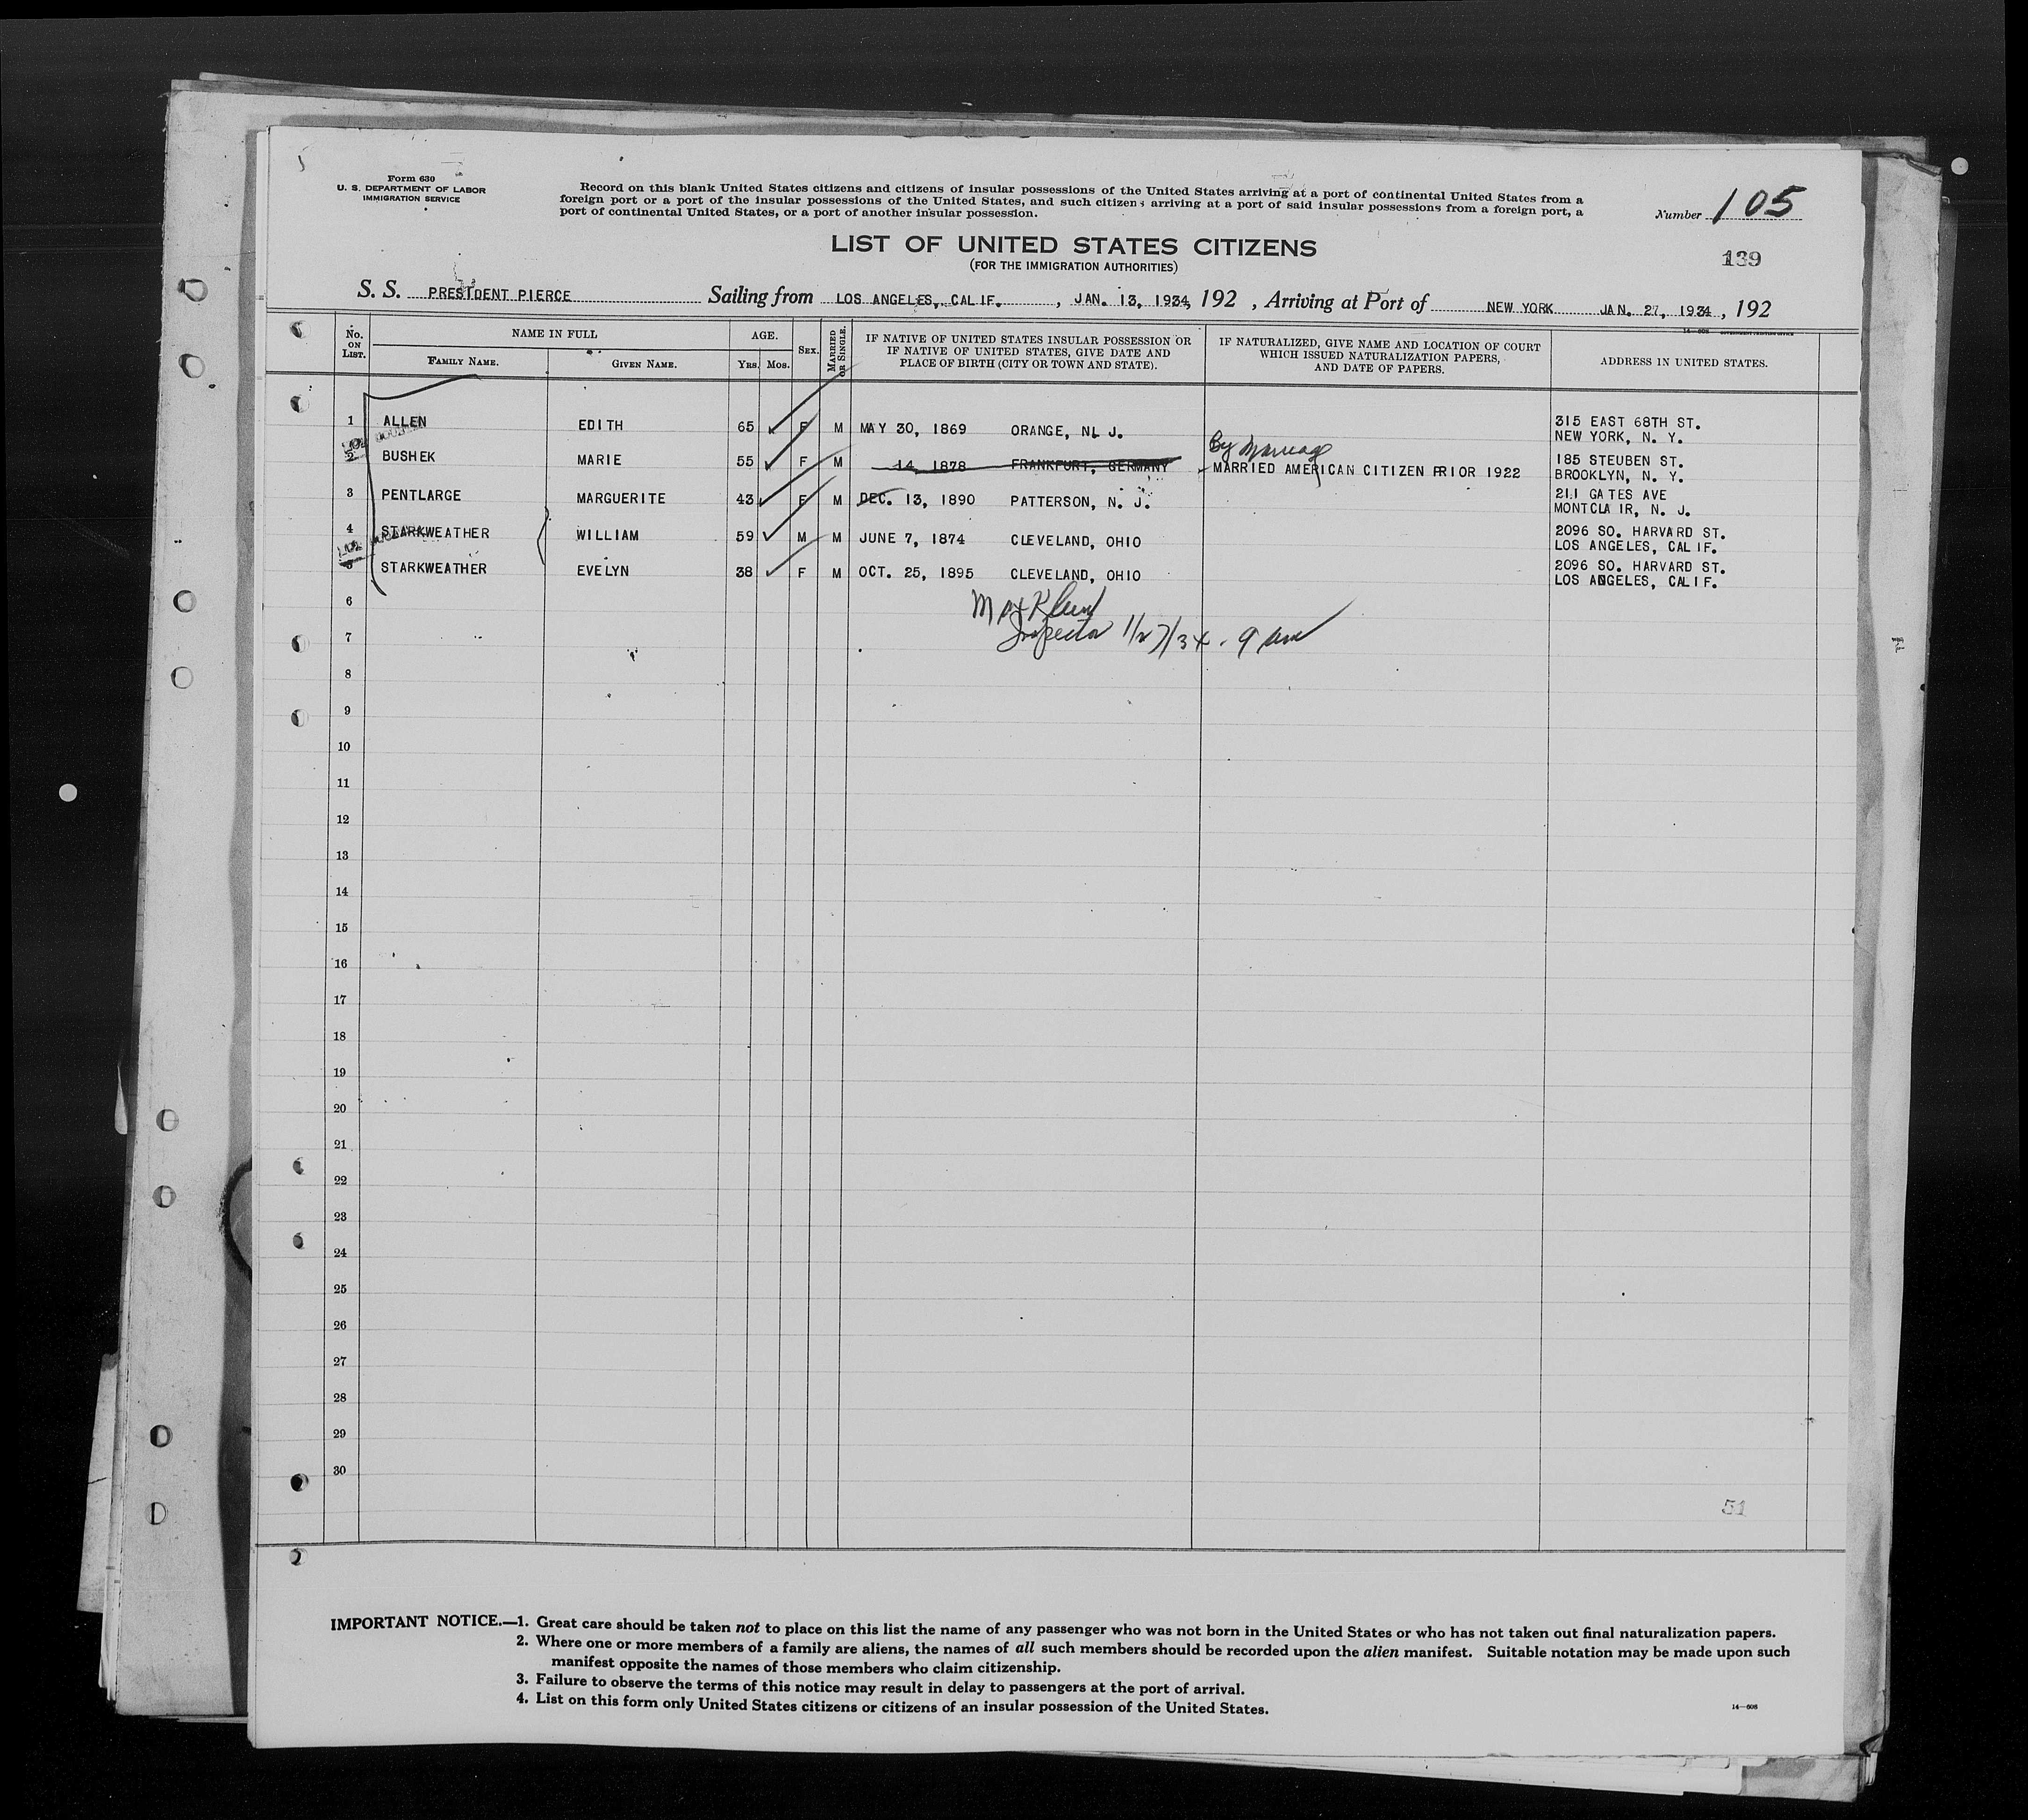 Form 630
U. S. DEPARTMENT OF LABOR
IMMIGRATION SERVICE
Record on this blank United States citizens and citizens of insular possessions of the United States arriving at a port of continental United States from a
foreign port or a port of the insular possessions of the United States, and such citizens arriving at a port of said insular possessions from a foreign port, a
port of continental United States, or a port of another insular possession.
Number 105
LIST OF UNITED STATES CITIZENS
(FOR THE IMMIGRATION AUTHORITIES)
139
S. S. PRESIDENT PIERCE Sailing from LOS ANGELES, CALIF. , JAN. 13, 1934, 192 , Arriving at Port of NEW YORK JAN. 27, 1934 , 192
No. ON LIST.
NAME IN FULL
FAMILY NAME.
GIVEN NAME.
AGE.
YRS. MOS.
SEX.
MARRIED OR SINGLE.
IF NATIVE OF UNITED STATES INSULAR POSSESSION OR
IF NATIVE OF UNITED STATES, GIVE DATE AND
PLACE OF BIRTH (CITY OR TOWN AND STATE).
IF NATURALIZED, GIVE NAME AND LOCATION OF COURT
WHICH ISSUED NATURALIZATION PAPERS,
AND DATE OF PAPERS.
ADDRESS IN UNITED STATES.
1 ALLEN EDITH 65 F M MAY 30, 1869 ORANGE, NL J. 315 EAST 68TH ST.
NEW YORK, N. Y.
By Marriage
2 BUSHEK MARIE 55 F M 14 1878 FRANKFURT, GERMANY MARRIED AMERICAN CITIZEN PRIOR 1922 185 STEUBEN ST.
BROOKLYN, N. Y.
3 PENTLARGE MARGUERITE 43 F M DEC. 13, 1890 PATTERSON, N. J. 211 GATES AVE
MONTCLAIR, N. J.
4 STARKWEATHER WILLIAM 59 M M JUNE 7, 1874 CLEVELAND, OHIO 2096 SO. HARVARD ST.
LOS ANGELES, CALIF.
5 STARKWEATHER EVELYN 38 F M OCT. 25, 1895 CLEVELAND, OHIO 2096 SO. HARVARD ST.
LOS ANGELES, CALIF.
6
Max Klein
7
Inspector 1/27/34 - 9 am
8
9
10
11
12
13
14
15
16
17
18
19
20
21
22
23
24
25
26
27
28
29
30
51
IMPORTANT NOTICE.—1. Great care should be taken not to place on this list the name of any passenger who was not born in the United States or who has not taken out final naturalization papers.
2. Where one or more members of a family are aliens, the names of all such members should be recorded upon the alien manifest. Suitable notation may be made upon such
manifest opposite the names of those members who claim citizenship.
3. Failure to observe the terms of this notice may result in delay to passengers at the port of arrival.
4. List on this form only United States citizens or citizens of an insular possession of the United States.
14—608